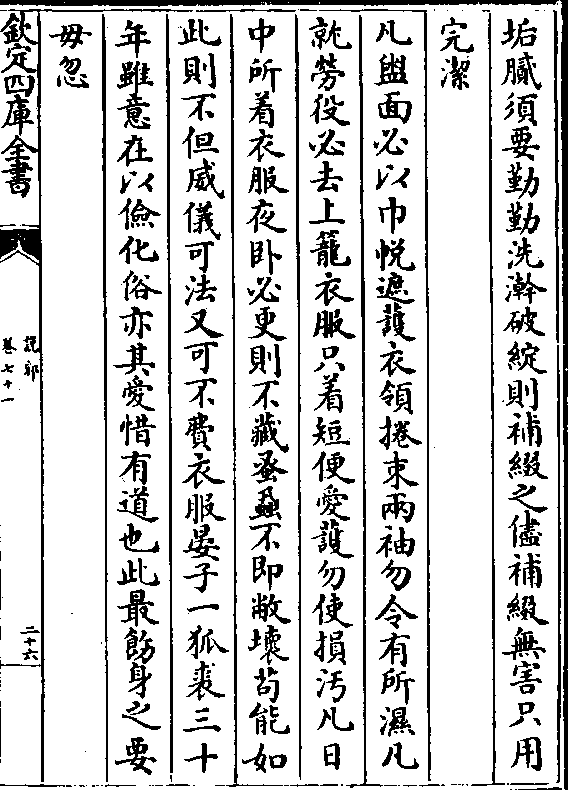 垢膩須要勤勤洗澣破綻則補綴之儘補綴無害只用
完潔
凡盥面必以巾帨遮護衣領捲束兩袖勿令有所濕凡
就勞役必去上籠衣服只着短便愛護勿使損汚凡日
中所着衣服夜卧必更則不藏蚤蝨不即敝壞苟能如
此則不但威儀可法又可不費衣服晏子一狐裘三十
年雖意在以儉化俗亦其愛惜有道也此最飭身之要
毋忽
欽定四庫全書
説郛
卷七十一
二十六